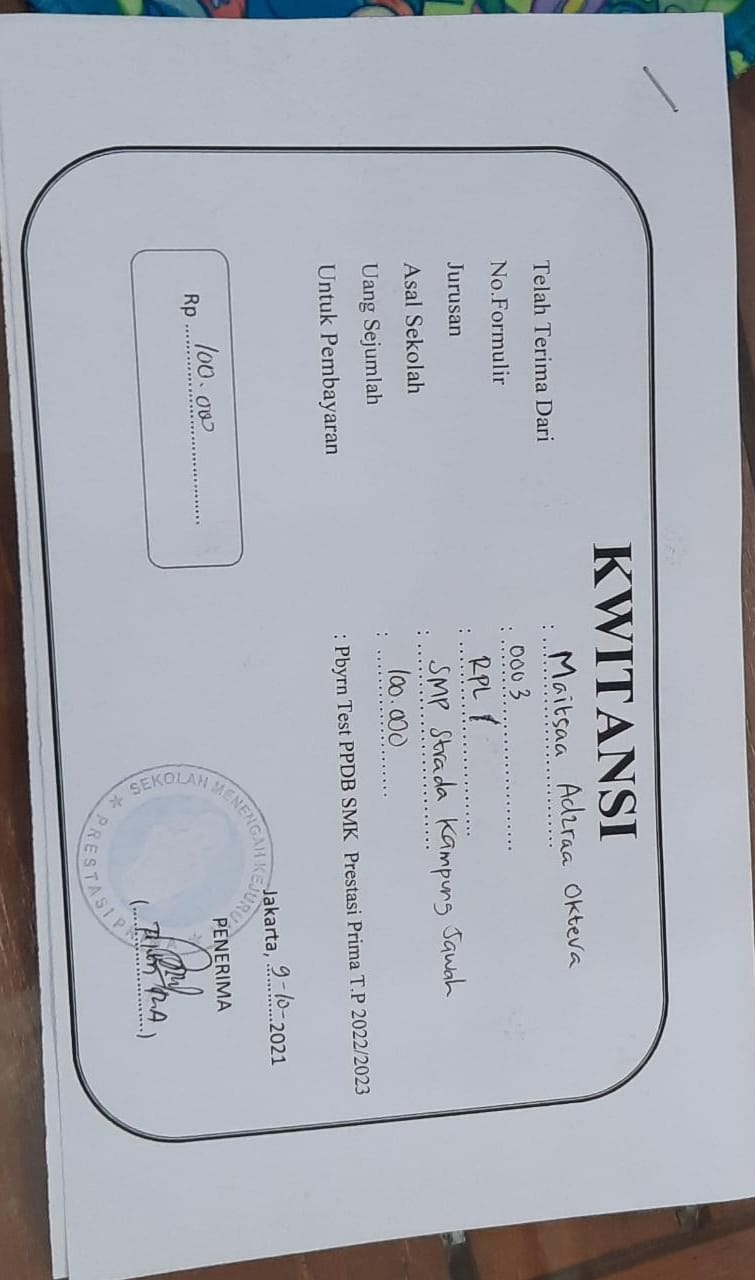 KWITANSI
Telah Terima Dari : Maitsaa Adzraa Okteva
No.Formulir : 0003
Jurusan : RPL
Asal Sekolah : SMP Strada Kampung Sawah
Uang Sejumlah : 100.000
Untuk Pembayaran : Pbyrn Test PPDB SMK Prestasi Prima T.P 2022/2023
Jakarta, 9-10-2021
PENERIMA
Rp 100.000
SEKOLAH MENENGAH KEJURUAN
PRESTASI